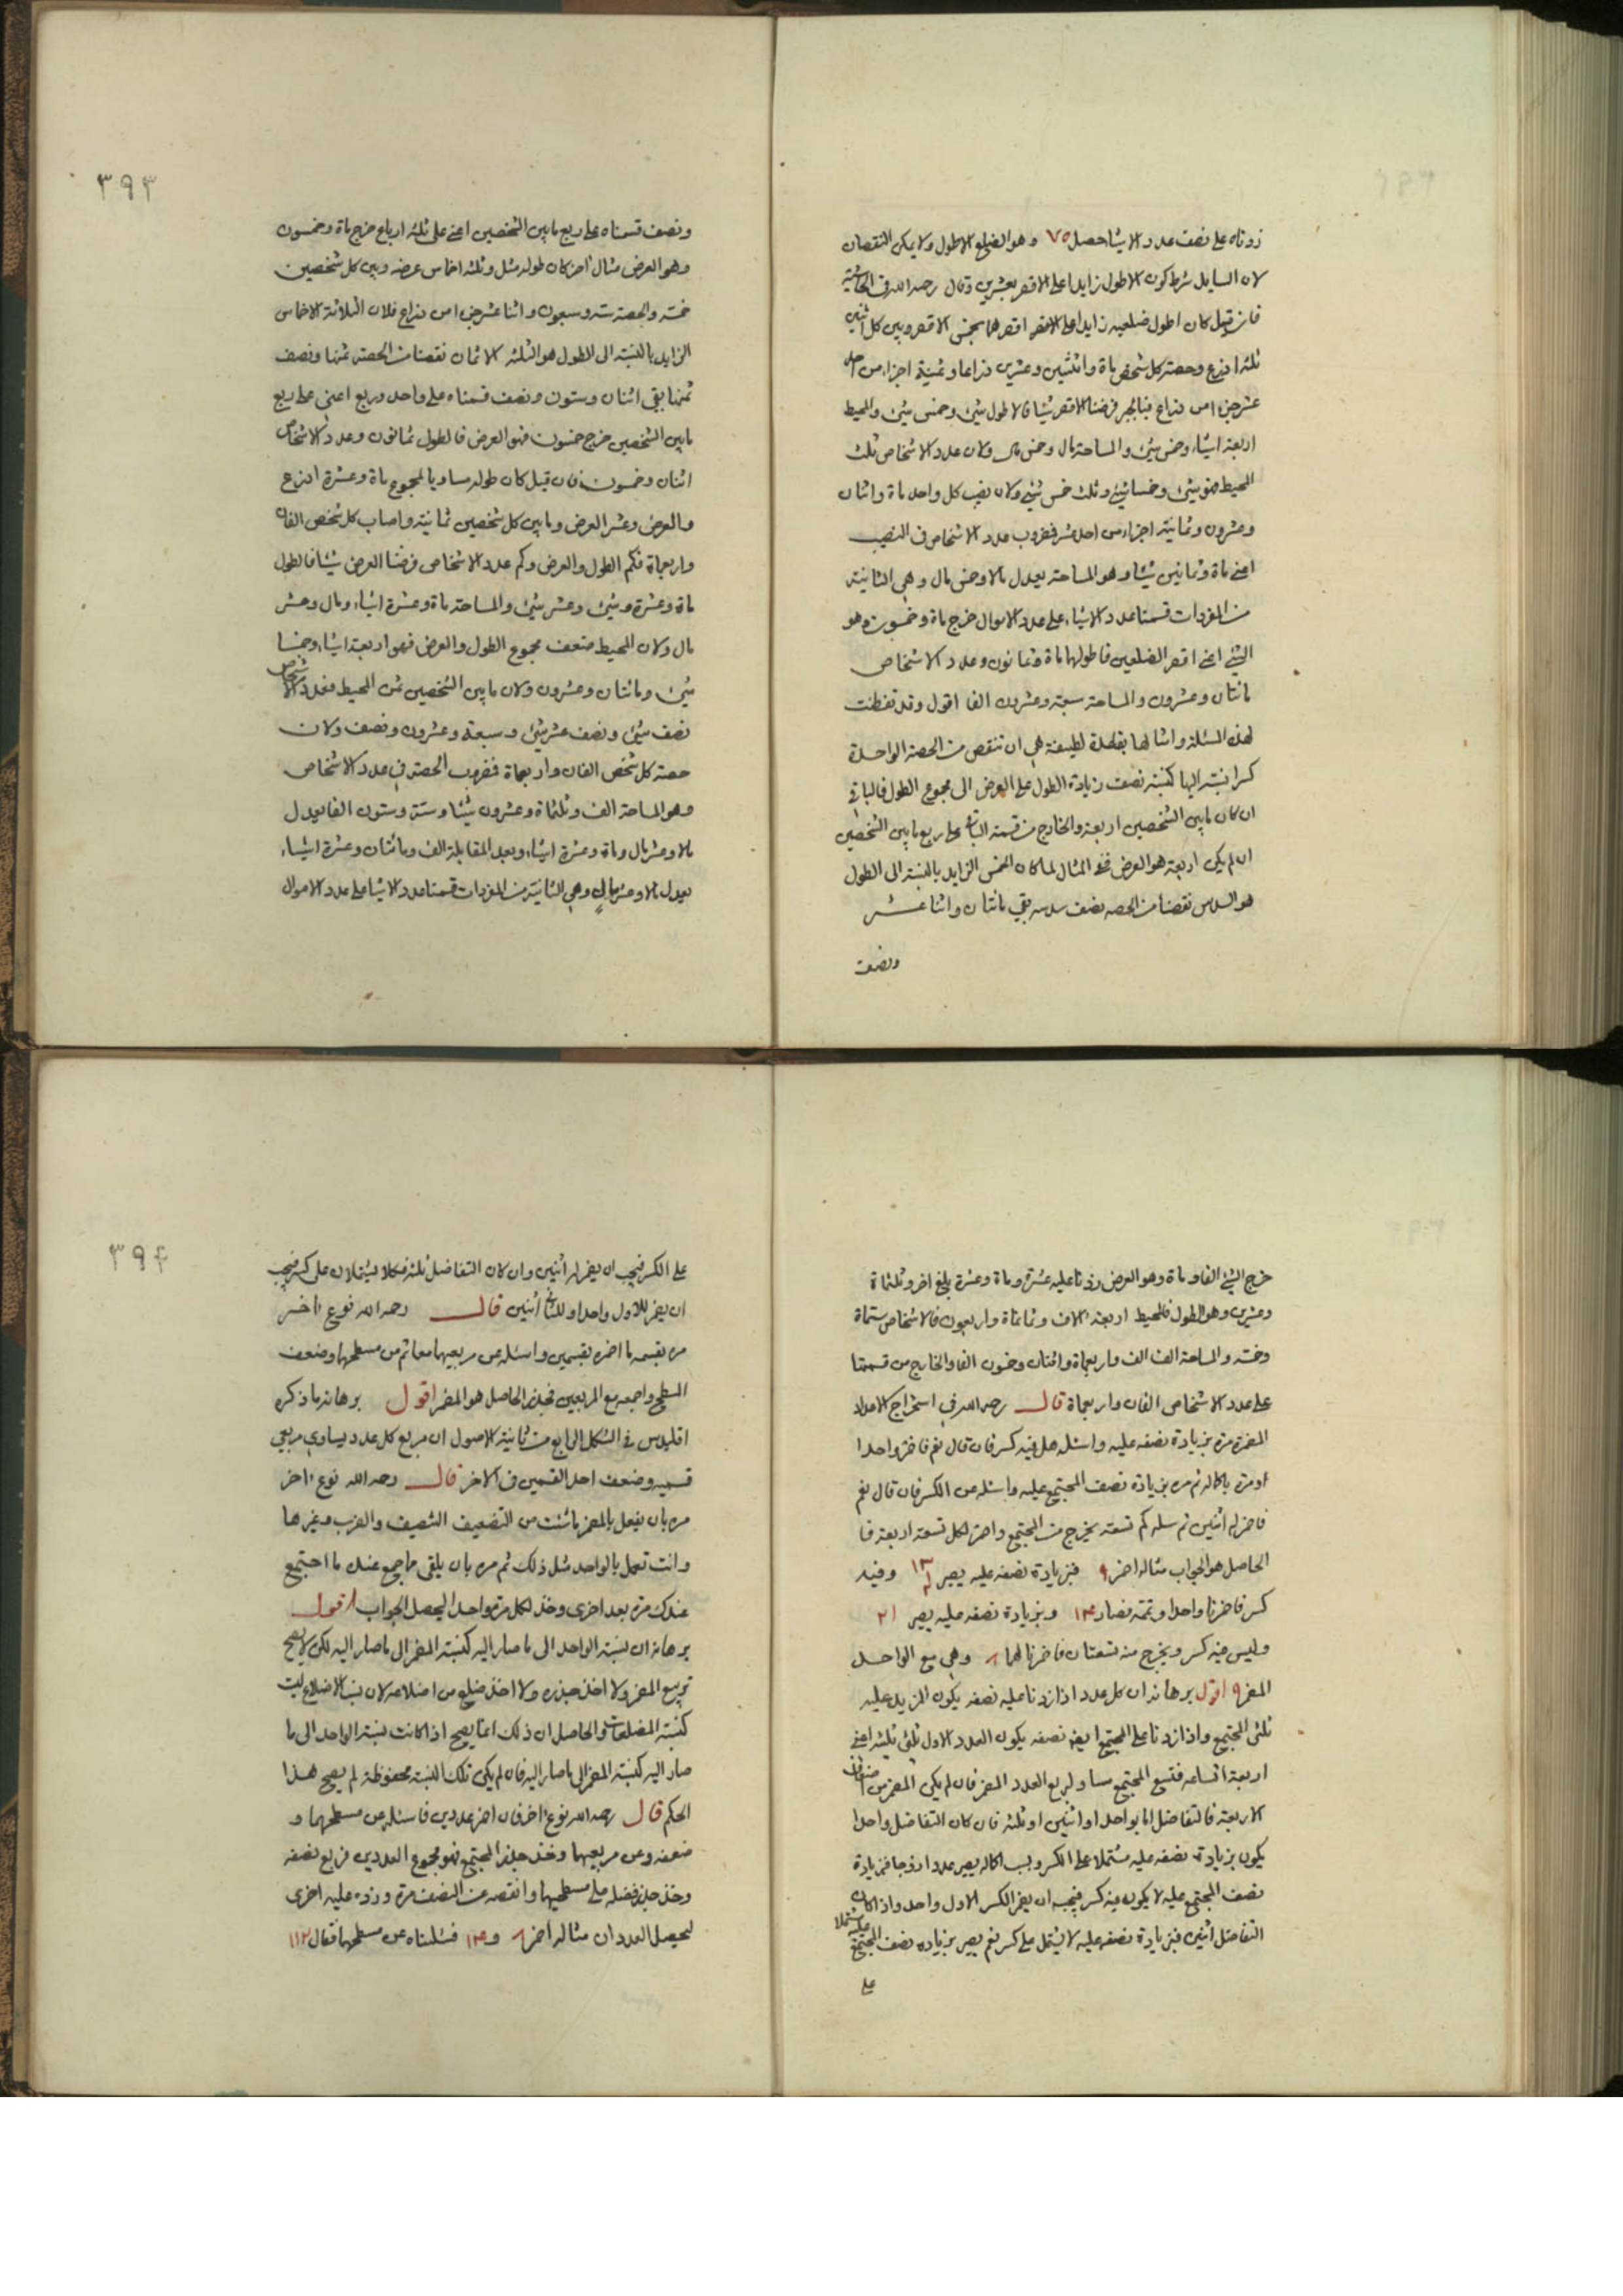 زدناه على نصف عدد الاشيا حصل ٧٥ وهو الضلع الاطول ولا يمكن النقصان
لان السايل شرط كون الاطول زايدا على الاقصر بعشرين وقال رحمه الله في الحاشية
فان قيل كان اطول ضلعيه زايدا على الاقصر بخمس الاقصر وبين كل اثنين
ثلثة اذرع وحصة كل شخص ماة واثنين وعشرين ذراعا وثمنية اجزاء من احد
عشر جزءا من ذراع فبالجبر فرضنا الاقصر شيئا فالاطول شيئ وخمس شيئ والمحيط
اربعة اشياء وخمسا شيئ والمساحة مال وخمس مال ولان عدد الاشخاص ثلث
المحيط فهو شيئ وخمسا شيئ وثلث خمس شيئ ولان نصيب كل واحد ماة واثنان
وعشرون وثمانية اجزاء من احد عشر فضروب عدد الاشخاص في النصيب
اعني ماة وثمانين شيئا وهو المساحة يعدل مالا وخمس مال وهي الثانية
من المفردات قسمنا عدد الاشياء على عدد الاموال خرج ماة وخمسون وهو
الشيئ اعني اقصر الضلعين فاطولهما ماة وثمانون وعدد الاشخاص
مائتان وعشرون والمساحة سبعة وعشرون الفا اقول وقد تفطنت
لهذه المسئلة وامثالها بقاعدة لطيفة هي ان تنقص من الحصة الواحدة
كسرا نسبته اليها كنسبة نصف زيادة الطول على العرض الى مجموع الطول فالباقي
ان كان ما بين الشخصين اربعة والخارج من قسمة الباقي على ربع ما بين الشخصين
ان لم يكن اربعة هو العرض ففي المثال لما كان الخمس الزايد بالنسبة الى الطول
هو السدس نقصنا من الحصة نصف سدسه بقي مائتان واثنا عشر
ونصف
٣٩٣
ونصف قسمناه على ربع ما بين الشخصين اعني على ثلثة ارباع خرج ماة وخمسون
وهو العرض مثال آخر كان طوله مثل وثلثة اخماس عرضه وبين كل شخصين
خمسة والحصة ستة وسبعون واثنا عشر جزءا من ذراع فلان الثلاثة الاخماس
الزايد بالنسبة الى الطول هو الثلثة الاثمان نقصنا من الحصة ثمنها ونصف
ثمنها بقي اثنان وستون ونصف قسمناه على واحد وربع اعني على ربع
ما بين الشخصين خرج خمسون فهو العرض فالطول ثمانون وعدد الاشخاص
اثنان وخمسون فان قيل كان طوله مساويا لمجموع ماة وعشرة اذرع
والعرض وعشر العرض وما بين كل شخصين ثمانية واصاب كل شخص الفان
واربعماة فكم الطول والعرض وكم عدد الاشخاص فرضنا العرض شيئا فالطول
ماة وعشرة وشيئ وعشر شيئ والمساحة ماة وعشرة اشياء ومال وعشر
مال ولان المحيط ضعف مجموع الطول والعرض فهو اربعة اشياء وخمسا
شيئ ومائتان وعشرون ولان ما بين الشخصين ثمن المحيط فعدد الاشخاص
نصف شيئ ونصف عشر شيئ وسبعة وعشرون ونصف ولان
حصة كل شخص الفان واربعماة فضروب الحصة في عدد الاشخاص
وهو المساحة الف وثلثماة وعشرون شيئا وستة وستون الفا يعدل
مالا وعشر مال وماة وعشرة اشياء وبعد المقابلة الف ومائتان وعشرة اشياء
يعدل مالا وعشر مال وهي الثانية من المفردات قسمنا عدد الاشيا على عدد الاموال
خرج الشيئ الفا وماة وهو العرض زدنا عليه عشره وماة وعشرة بلغ الفا وثلثماة
وعشرين وهو الطول فالمحيط اربعة الاف وثمانماة واربعون فالاشخاص ستماة
وخمسة والمساحة الف الف واربعماة واثنان وخمسون الفا والخارج من قسمتها
على عدد الاشخاص الفان واربعماة قال رحمه الله في استخراج الاعداد
المضمرة مره بزيادة نصفه عليه واسئله هل فيه كسر فان قال نعم فاضمر واحدا
او مره باكماله ثم مره بزيادة نصف المجتمع عليه واسئله عن الكسر فان قال نعم
فاضمر له اثنين ثم سله كم تسعة يخرج من المجتمع واضمر لكل تسعة اربعة فا
لحاصل هو الجواب مثاله اضمر ٩ فبزيادة نصفه عليه يصير ١٣ وفيه
كسر فاضمرنا واحدا وتممه فصار ١٤ وبزيادة نصفه عليه يصير ٢١
وليس فيه كسر ويخرج منه تسعتان فاضمرنا لهما ٨ وهي مع الواحد
المضمر ٩ اقول برهانه ان كل عدد اذا زدنا عليه نصفه يكون المزيد عليه
ثلثي المجتمع واذا زدنا على المجتمع ايضا نصفه يكون العدد الاول ثلثي ثلثيه اعني
اربعة اتساعه فتسع المجتمع مساو لربع العدد المضمر فان لم يكن المضمر من اضعاف
الاربعة فالتفاضل اما بواحد او اثنين او ثلثة فان كان التفاضل واحدا
يكون بزيادة نصفه عليه مشتملا على الكسر وبسبب اكماله يصير عددا زوجا فبزيادة
نصف المجتمع عليه لا يكون فيه كسر فيجب ان يضمر للكسر الاول واحد واذا كان
التفاضل اثنين فبزيادة نصفه عليه لا يشتمل على كسر نعم يصير بزيادة نصف المجتمع عليه مشتملا
على
٣٩٤
على الكسر فيجب ان يضمر له اثنين وان كان التفاضل ثلثة فكلاهما يشتملان على كسر فيجب
ان يضمر للاول واحدا وللثاني اثنين قال رحمه الله نوع آخر
مره بقسمة ما اضمره بقسمين واسئله عن مربعيهما معا ثم من مسطحهما وضعف
المسطح واجمعه مع المربعين فجذر الحاصل هو المضمر اقول برهانه ما ذكره
اقليدس في الشكل الرابع من ثانية الاصول ان مربع كل عدد يساوي مربعي
قسميه وضعف احد القسمين في الاخر قال رحمه الله نوع آخر
مره بان يفعل بالمضمر ما شئت من التضعيف والتنصيف والضرب وغيرها
وانت تعمل بالواحد مثل ذلك ثم مره بان يلقى ما جمع عنده ما اجتمع
عندك مرة بعد اخرى وخذ لكل مرة واحدا ليحصل الجواب اقول
برهانه ان نسبة الواحد الى ما صار اليه كنسبة المضمر الى ما صار اليه لكن لا يصح
تربيع المضمر ولا اخذ جذره ولا اخذ ضلع من اضلاعه لان نسب الاضلاع ليست
كنسبة المضلعات والحاصل ان ذلك انما يصح اذا كانت نسبة الواحد الى ما
صار اليه كنسبة المضمر الى ما صار اليه فان لم يكن تلك النسبة محفوظة لم يصح هذا
الحكم قال رحمه الله نوع آخر فان اضمر عددين فاسئله عن مسطحهما و
ضعفه وعن مربعيهما وخذ جذر المجتمع فهو مجموع العددين فربع نصفه
وخذ جذر فضله على مسطحهما وانقصه من النصف مرة وزده عليه اخرى
ليحصل العددان مثاله اضمر ٨ و ١٤ فسئلناه عن مسطحهما فقال ١١٢